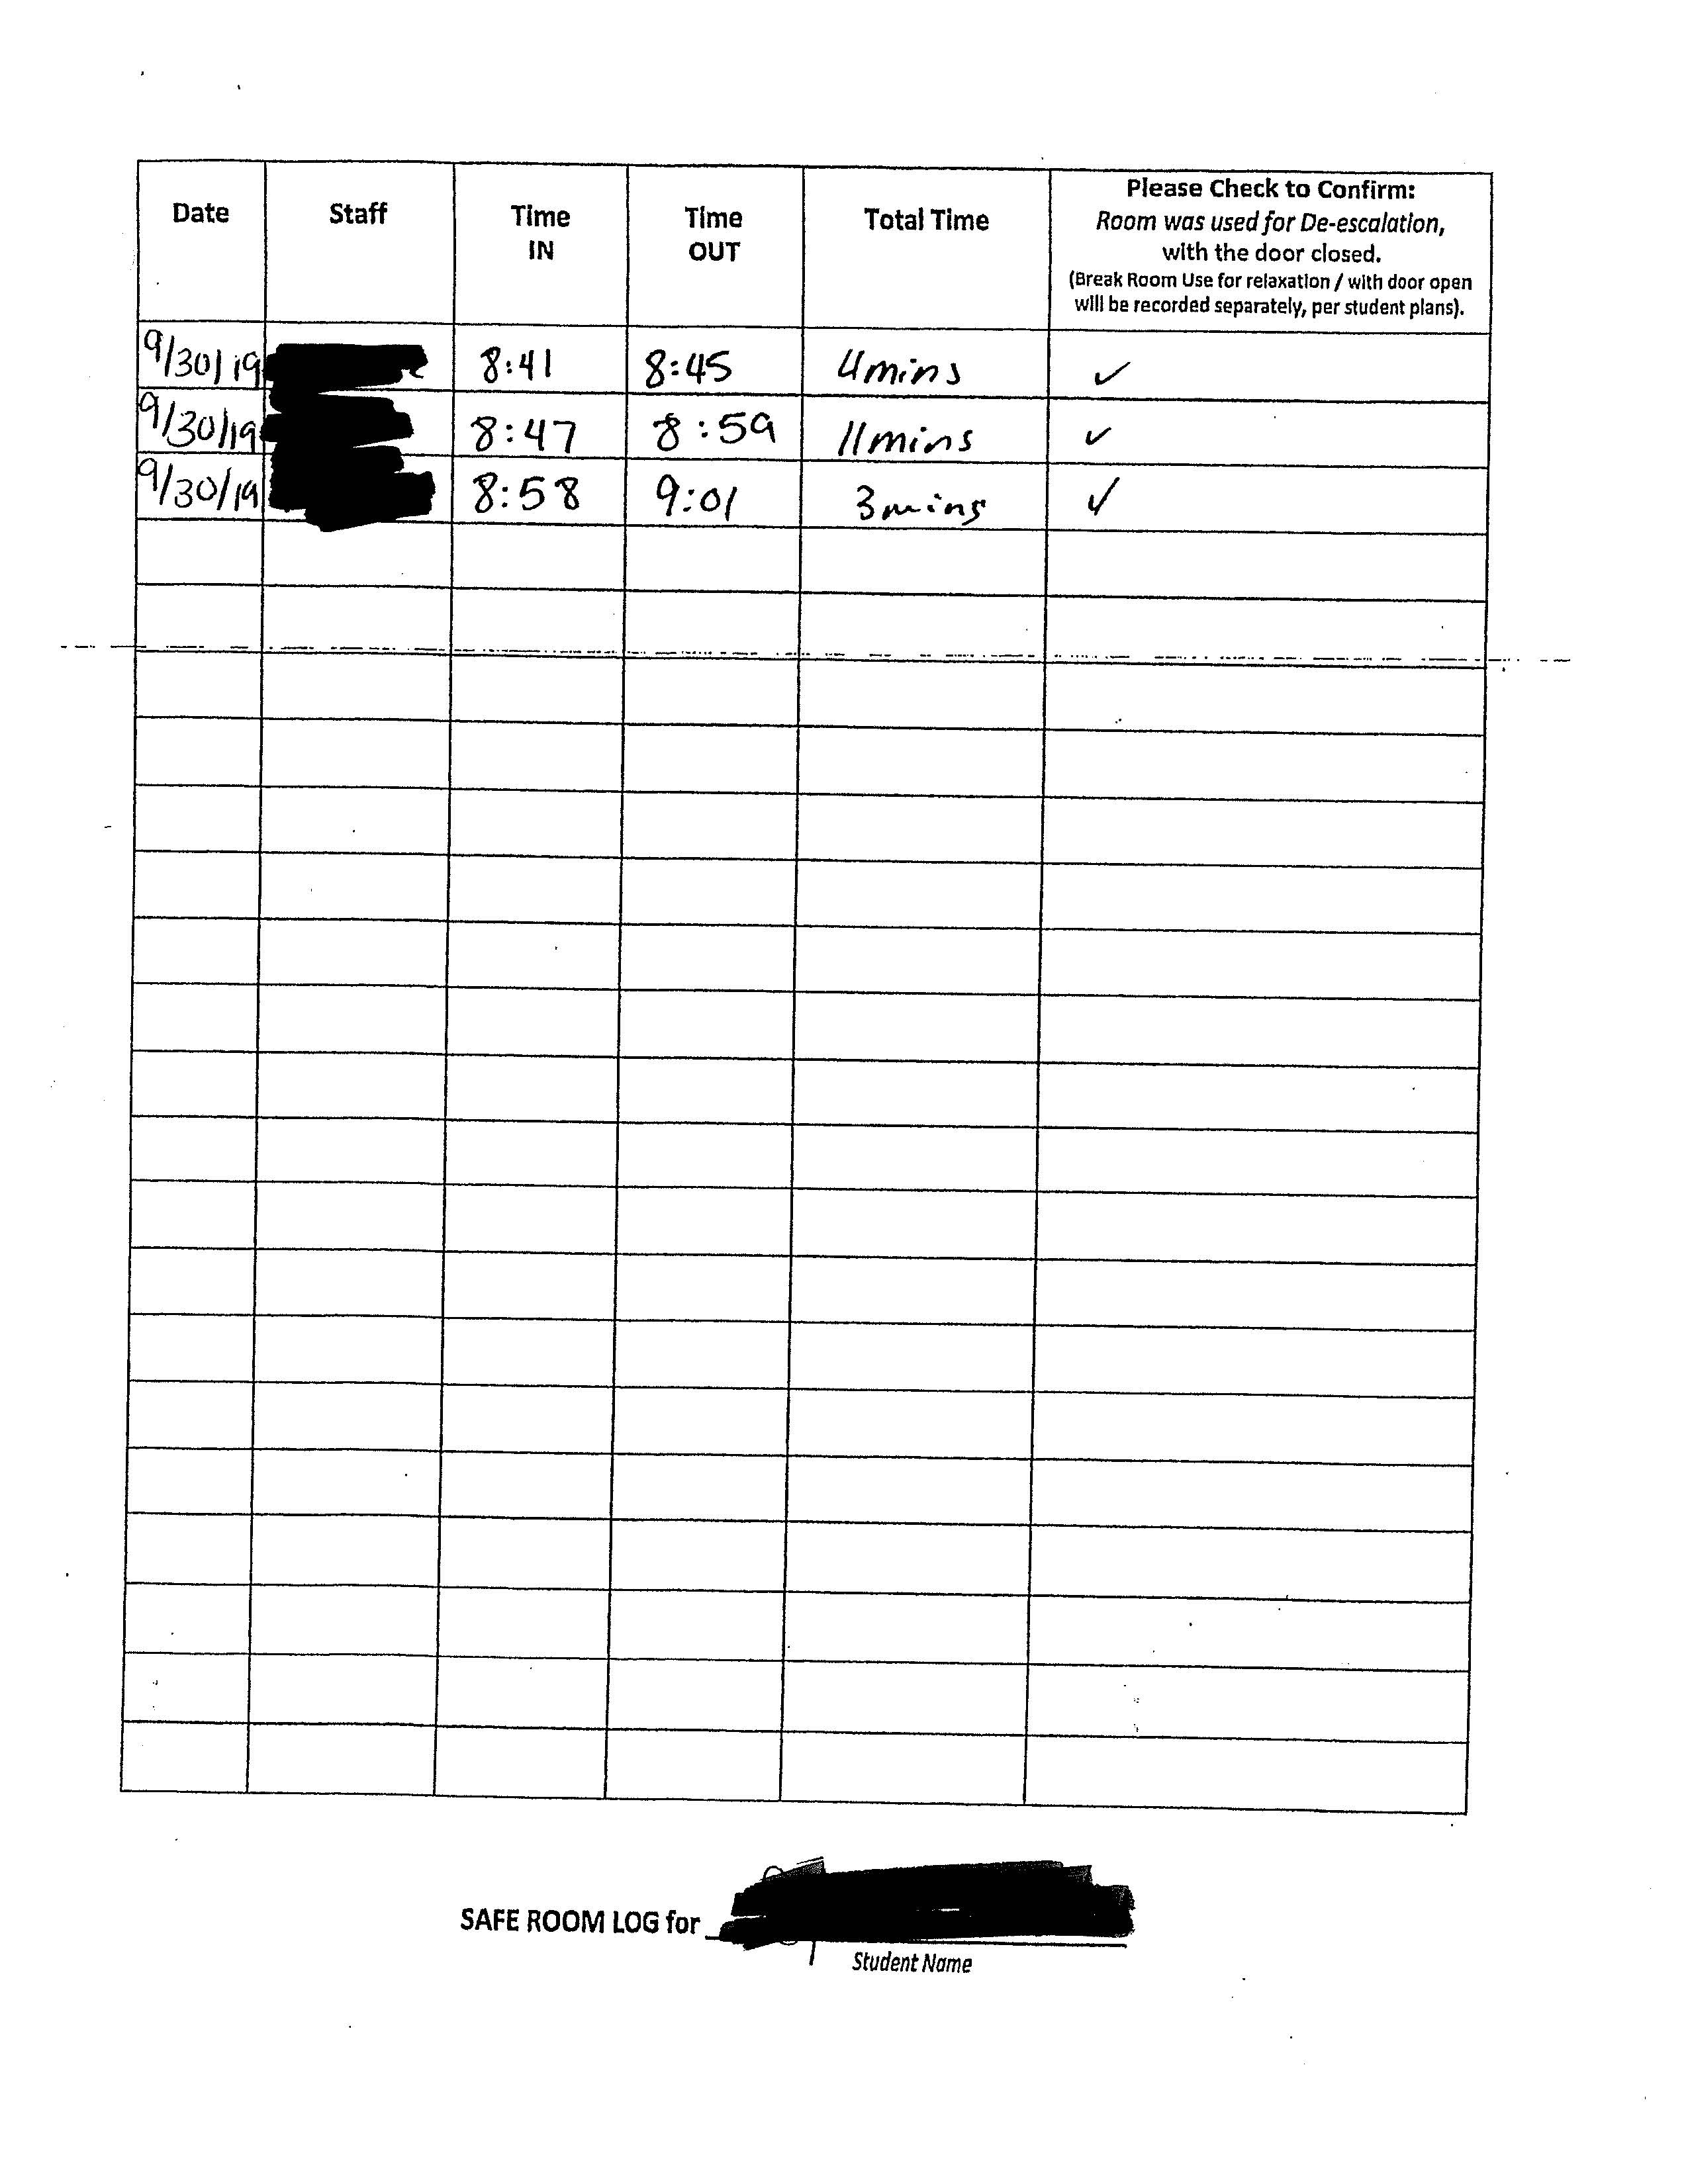 Date Staff Time IN Time OUT Total Time Please Check to Confirm:
Room was used for De-escalation,
with the door closed.
(Break Room Use for relaxation / with door open
will be recorded separately, per student plans).
9/30/19 8:41 8:45 4mins ✓
9/30/19 8:47 8:59 11mins ✓
9/30/19 8:58 9:01 3mins ✓
SAFE ROOM LOG for
Student Name